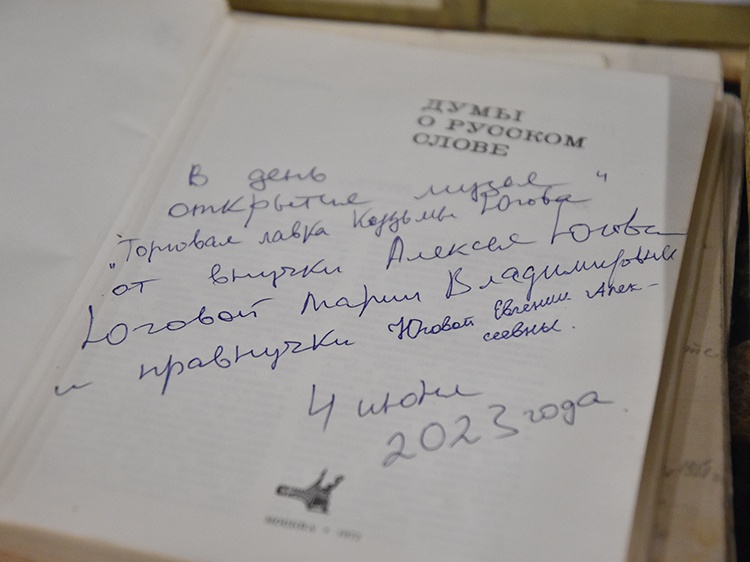 ДУМЫ
О РУССКОМ
СЛОВЕ
В день
открытие музея
"Торговая лавка Кузьмы Югова"
от внучки Алексея Югова
Юговой Марии Владимировны
и правнучки Юговой Евгении Алек-
сеевны.
4 июня
2023 года.
МОСКВА • 1972